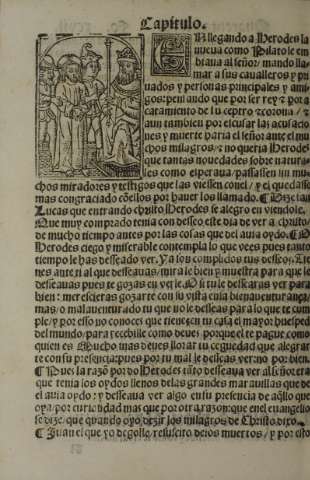 Capitulo.
E llegando a Herodes la
nueua como Pilato le em
biaua al señor / mando lla
mar a sus caualleros y pri
uados y personas principales y ami
gos: pensando que por ser rey ⁊ por a
catamiento de su ceptro ⁊ corona / ⁊
aun tambien por escusar las acusacio
nes y muerte haria el señor ante el mu
chos milagros / ⁊ no queria Herodes
que tantas nouedades sobre natura
les como esperaua / passassen sin mu
chos miradores y testigos que las viessen conel / y el quedasse
mas congraciado cõellos por hauer los llamado. ¶ Dize san
Lucas que entrando christo Herodes se alegro en viendole.
Que muy comprado tenia con desseo este dia de ver a christo /
de mucho tiempo antes por las cosas que del auia oydo. ¶ O
Herodes ciego y miserable contempla lo que vees pues tanto
tiempo le has desseado ver. Ya los complidos tus desseos. Tie
nes ante ti al que desseauas / mira le bien y muestra para que le
desseauas pues te gozas en velle. O si tu le dessearas ver para
bien: merescieras gozarte con su vista en la bienauenturança /
mas o malauenturado tu que no le desseas para lo que te cum
ple / y por esso no conoces que tienes en tu casa el mayor huesped
del mundo / para recebille como deues / porque el te pague como
quien es. Mucho mas deues llorar tu ceguedad / que alegrar
te con su presencia: pues por tu mal le desseas ver / no por bien.
¶ Pues la razõ por do Herodes tãto desseaua ver al señor era
que tenia los oydos llenos de las grandes marauillas que de
el auia oydo: y desseaua ver algo en su presencia de aq̃llo que
oya / por curiosidad mas que por otra razon: que en el euangelio
se dize / que quando oyo dezir los milagros de Christo dixo.
¶ Juan el que yo degolle / resuscito delos muertos / y por esto